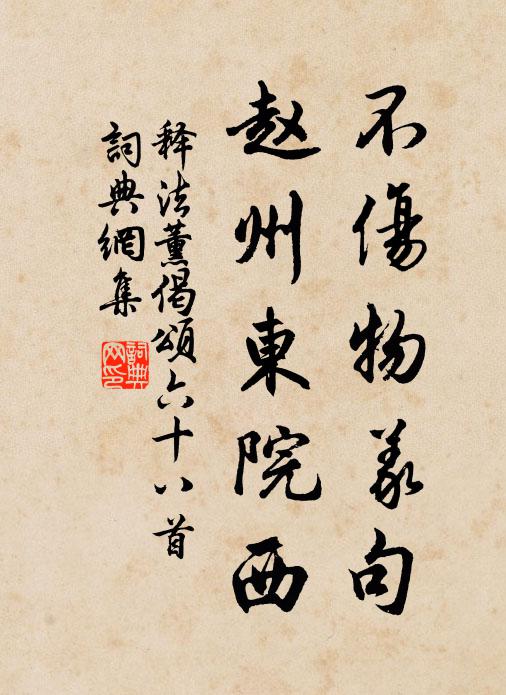 不傷物義句
赵州東院西
释法薰偈頌六十八首
詞典網集
詞典网印